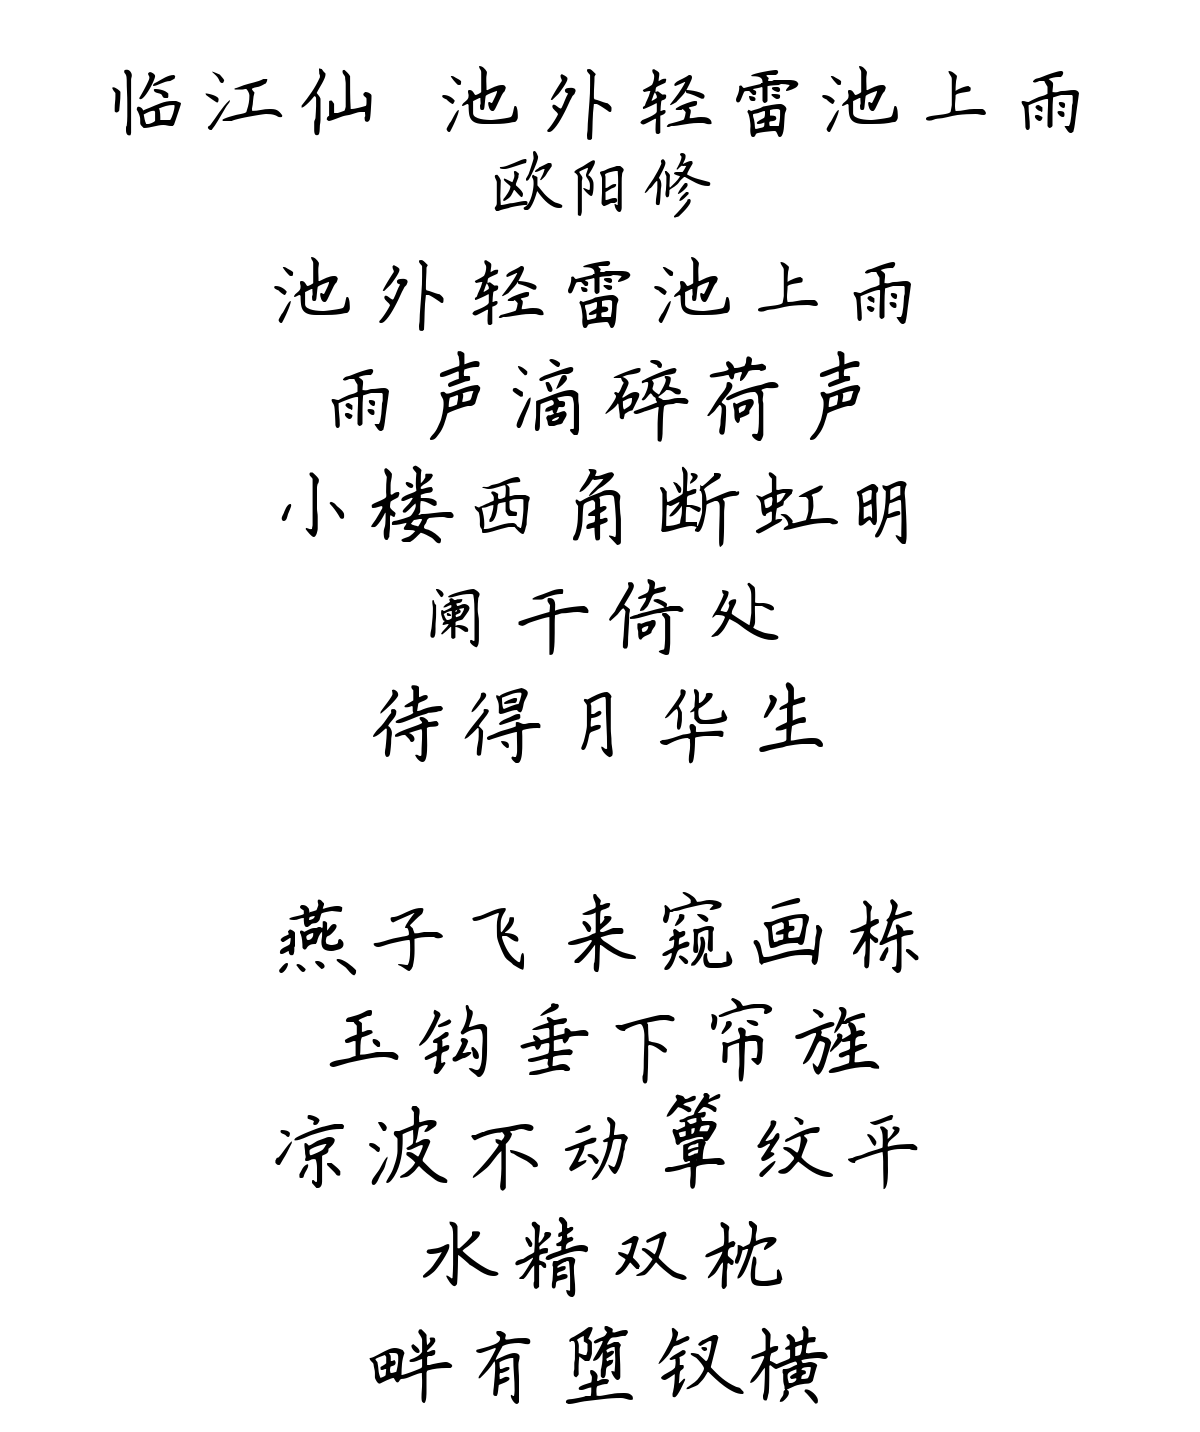 临江仙 池外轻雷池上雨
欧阳修
池外轻雷池上雨
雨声滴碎荷声
小楼西角断虹明
阑干倚处
待得月华生
燕子飞来窥画栋
玉钩垂下帘旌
凉波不动簟纹平
水精双枕
畔有堕钗横